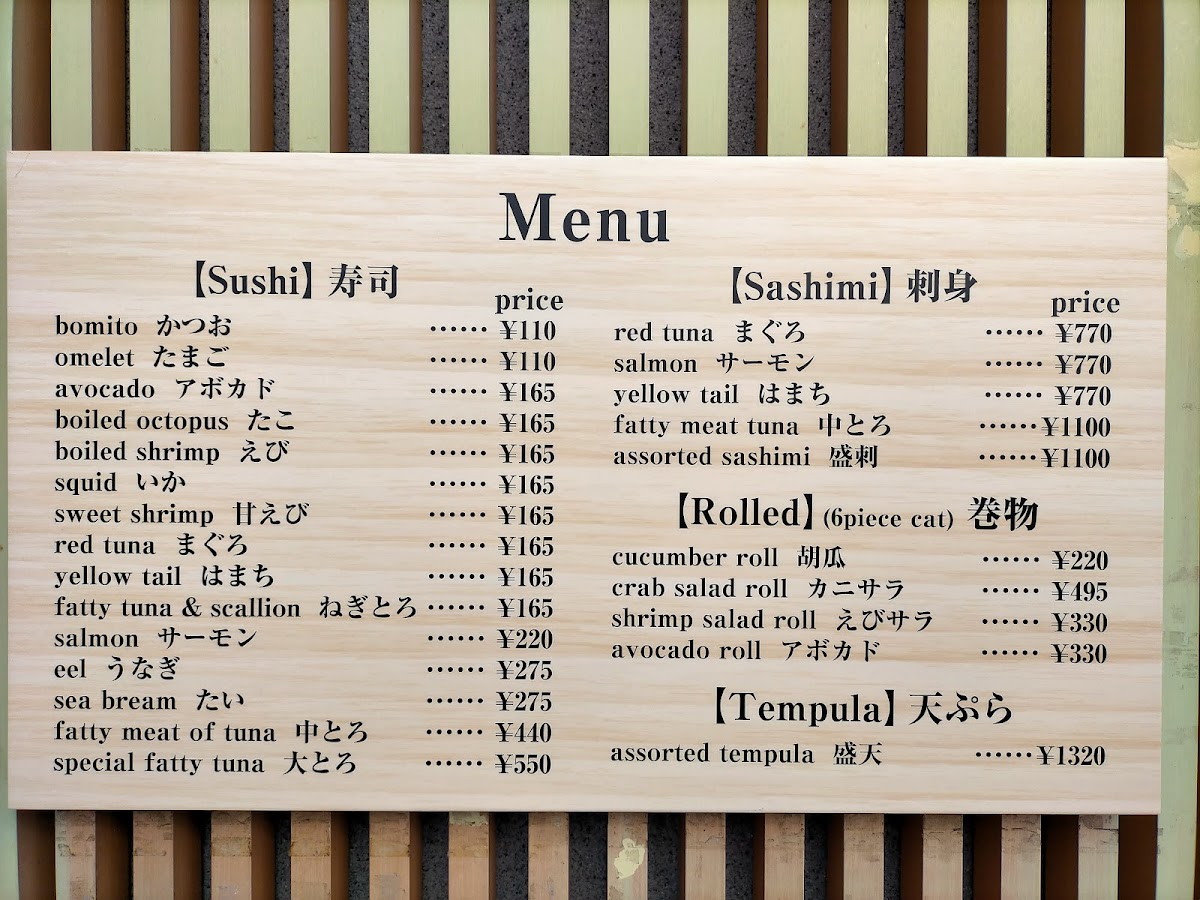 Menu
【Sushi】 寿司
price
bomito かつお …… ¥110
omelet たまご …… ¥110
avocado アボカド …… ¥165
boiled octopus たこ …… ¥165
boiled shrimp えび …… ¥165
squid いか …… ¥165
sweet shrimp 甘えび …… ¥165
red tuna まぐろ …… ¥165
yellow tail はまち …… ¥165
fatty tuna & scallion ねぎとろ …… ¥165
salmon サーモン …… ¥220
eel うなぎ …… ¥275
sea bream たい …… ¥275
fatty meat of tuna 中とろ …… ¥440
special fatty tuna 大とろ …… ¥550
【Sashimi】 刺身
price
red tuna まぐろ …… ¥770
salmon サーモン …… ¥770
yellow tail はまち …… ¥770
fatty meat tuna 中とろ …… ¥1100
assorted sashimi 盛刺 …… ¥1100
【Rolled】 (6piece cat) 巻物
cucumber roll 胡瓜 …… ¥220
crab salad roll カニサラ …… ¥495
shrimp salad roll えびサラ …… ¥330
avocado roll アボカド …… ¥330
【Tempula】 天ぷら
assorted tempula 盛天 …… ¥1320